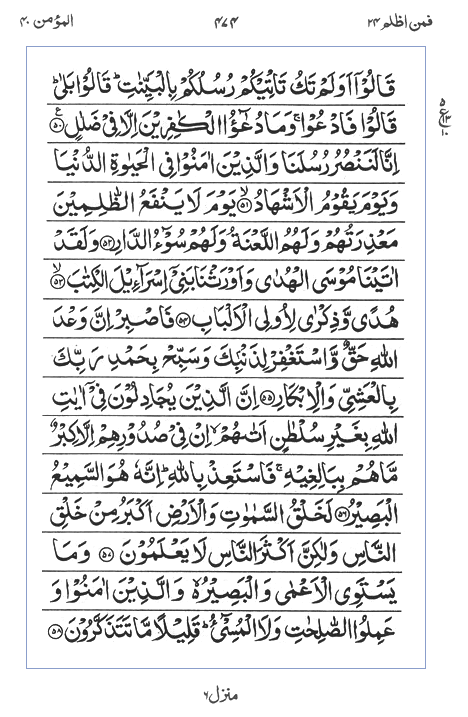 فمن اظلم ٢٤ ٤٧٤ المؤمن ٤٠
قَالُوْۤا اَوَ لَمْ تَكُ تَاْتِيْكُمْ رُسُلُكُمْ بِالْبَيِّنٰتِ ؕ قَالُوْا بَلٰى ؕ
قَالُوْا فَادْعُوْا ۚ وَ مَا دُعٰٓؤُا الْكٰفِرِيْنَ اِلَّا فِيْ ضَلٰلٍ ۟۠ ﴿٥٠﴾
ع ٥ ١٣ ١٠
اِنَّا لَنَنْصُرُ رُسُلَنَا وَ الَّذِيْنَ اٰمَنُوْا فِي الْحَيٰوةِ الدُّنْيَا
وَ يَوْمَ يَقُوْمُ الْاَشْهَادُ ۙ﴿٥١﴾ يَوْمَ لَا يَنْفَعُ الظّٰلِمِيْنَ
مَعْذِرَتُهُمْ وَ لَهُمُ اللَّعْنَةُ وَ لَهُمْ سُوْٓءُ الدَّارِ ﴿٥٢﴾ وَ لَقَدْ
اٰتَيْنَا مُوْسَى الْهُدٰى وَ اَوْرَثْنَا بَنِيْۤ اِسْرَآءِيْلَ الْكِتٰبَ ۙ﴿٥٣﴾
هُدًى وَّ ذِكْرٰى لِاُولِي الْاَلْبَابِ ﴿٥٤﴾ فَاصْبِرْ اِنَّ وَعْدَ
اللّٰهِ حَقٌّ وَّ اسْتَغْفِرْ لِذَنْۢبِكَ وَ سَبِّحْ بِحَمْدِ رَبِّكَ
بِالْعَشِيِّ وَ الْاِبْكَارِ ﴿٥٥﴾ اِنَّ الَّذِيْنَ يُجَادِلُوْنَ فِيْۤ اٰيٰتِ
اللّٰهِ بِغَيْرِ سُلْطٰنٍ اَتٰىهُمْ ۙ اِنْ فِيْ صُدُوْرِهِمْ اِلَّا كِبْرٌ
مَّا هُمْ بِبَالِغِيْهِ ۚ فَاسْتَعِذْ بِاللّٰهِ ؕ اِنَّهٗ هُوَ السَّمِيْعُ
الْبَصِيْرُ ﴿٥٦﴾ لَخَلْقُ السَّمٰوٰتِ وَ الْاَرْضِ اَكْبَرُ مِنْ خَلْقِ
النَّاسِ وَ لٰكِنَّ اَكْثَرَ النَّاسِ لَا يَعْلَمُوْنَ ﴿٥٧﴾ وَ مَا
يَسْتَوِي الْاَعْمٰى وَ الْبَصِيْرُ ۙ۬ وَ الَّذِيْنَ اٰمَنُوْا وَ
عَمِلُوا الصّٰلِحٰتِ وَ لَا الْمُسِيْٓءُ ؕ قَلِيْلًا مَّا تَتَذَكَّرُوْنَ ﴿٥٨﴾
منزل ٦